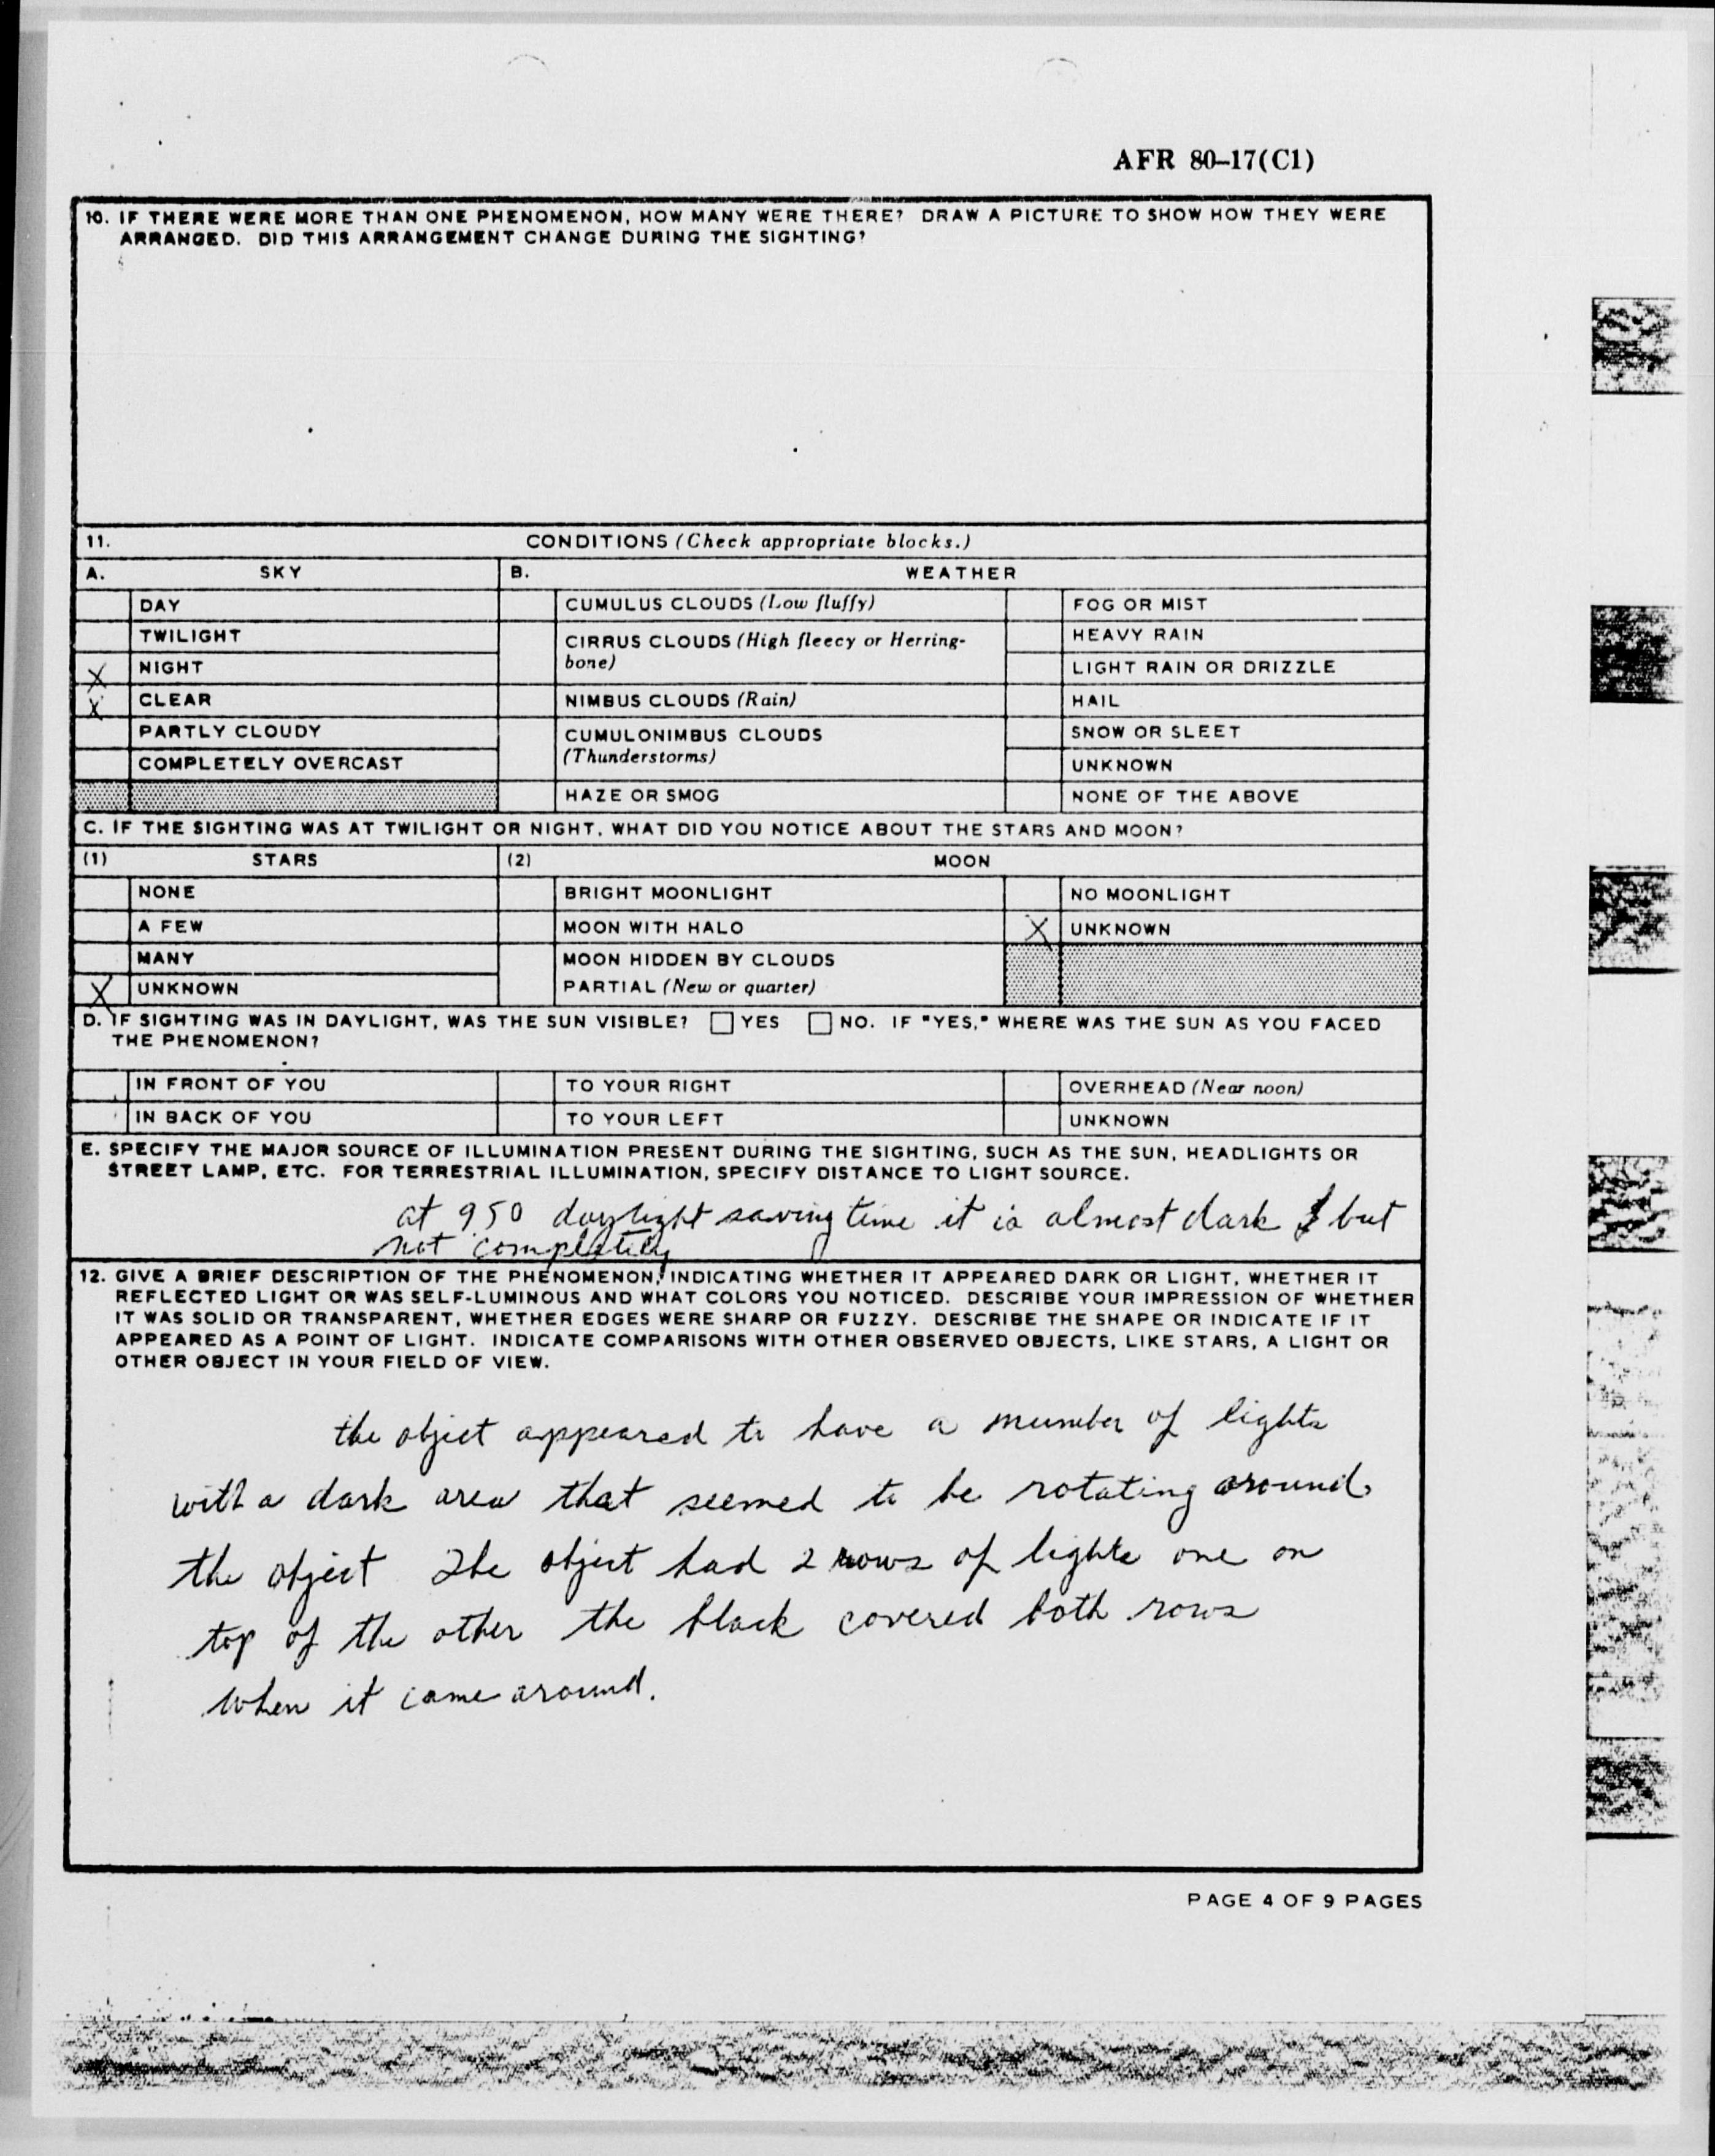 AFR 80-17(C1)
10. IF THERE WERE MORE THAN ONE PHENOMENON, HOW MANY WERE THERE? DRAW A PICTURE TO SHOW HOW THEY WERE
ARRANGED. DID THIS ARRANGEMENT CHANGE DURING THE SIGHTING?
11. CONDITIONS (Check appropriate blocks.)
A. SKY B. WEATHER
DAY CUMULUS CLOUDS (Low fluffy) FOG OR MIST
TWILIGHT CIRRUS CLOUDS (High fleecy or Herring- HEAVY RAIN
X NIGHT bone) LIGHT RAIN OR DRIZZLE
X CLEAR NIMBUS CLOUDS (Rain) HAIL
PARTLY CLOUDY CUMULONIMBUS CLOUDS SNOW OR SLEET
COMPLETELY OVERCAST (Thunderstorms) UNKNOWN
HAZE OR SMOG NONE OF THE ABOVE
C. IF THE SIGHTING WAS AT TWILIGHT OR NIGHT, WHAT DID YOU NOTICE ABOUT THE STARS AND MOON?
(1) STARS (2) MOON
NONE BRIGHT MOONLIGHT NO MOONLIGHT
A FEW MOON WITH HALO X UNKNOWN
MANY MOON HIDDEN BY CLOUDS
X UNKNOWN PARTIAL (New or quarter)
D. IF SIGHTING WAS IN DAYLIGHT, WAS THE SUN VISIBLE? YES NO. IF "YES," WHERE WAS THE SUN AS YOU FACED
THE PHENOMENON?
IN FRONT OF YOU TO YOUR RIGHT OVERHEAD (Near noon)
IN BACK OF YOU TO YOUR LEFT UNKNOWN
E. SPECIFY THE MAJOR SOURCE OF ILLUMINATION PRESENT DURING THE SIGHTING, SUCH AS THE SUN, HEADLIGHTS OR
STREET LAMP, ETC. FOR TERRESTRIAL ILLUMINATION, SPECIFY DISTANCE TO LIGHT SOURCE.
at 950 daylight saving time it is almost dark but
not completely
12. GIVE A BRIEF DESCRIPTION OF THE PHENOMENON, INDICATING WHETHER IT APPEARED DARK OR LIGHT, WHETHER IT
REFLECTED LIGHT OR WAS SELF-LUMINOUS AND WHAT COLORS YOU NOTICED. DESCRIBE YOUR IMPRESSION OF WHETHER
IT WAS SOLID OR TRANSPARENT, WHETHER EDGES WERE SHARP OR FUZZY. DESCRIBE THE SHAPE OR INDICATE IF IT
APPEARED AS A POINT OF LIGHT. INDICATE COMPARISONS WITH OTHER OBSERVED OBJECTS, LIKE STARS, A LIGHT OR
OTHER OBJECT IN YOUR FIELD OF VIEW.
the object appeared to have a number of lights
with a dark area that seemed to be rotating around
the object The object had 2 rows of lights one on
top of the other the black covered both rows
when it came around.
PAGE 4 OF 9 PAGES